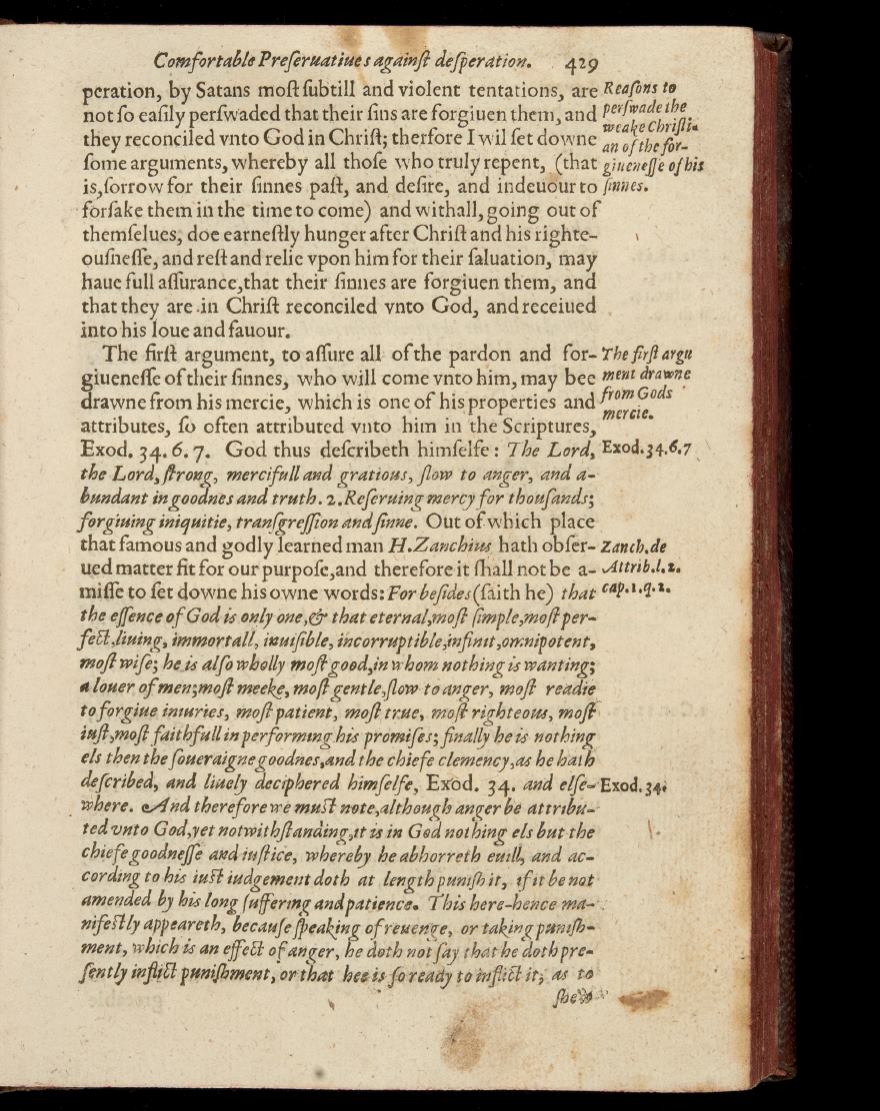 Comfortable Preſeruatiues againſt deſperation. 429
peration, by Satans moſt ſubtill and violent tentations, are
not ſo eaſily perſwaded that their ſins are forgiuen them, and
they reconciled vnto God in Chriſt; therfore I wil ſet downe
ſome arguments, whereby all thoſe who truly repent, (that
is, ſorrow for their ſinnes paſt, and deſire, and indeuour to
forſake them in the time to come) and withall, going out of
themſelues, doe earneſtly hunger after Chriſt and his righte-
ouſneſſe, and reſt and relie vpon him for their ſaluation, may
haue full aſſurance, that their ſinnes are forgiuen them, and
that they are in Chriſt reconciled vnto God, and receiued
into his loue and fauour.
Reaſons to
perſwade the
weake Chriſti-
an of the for-
giueneſſe of his
ſinnes.
The firſt argument, to aſſure all of the pardon and for-
giueneſſe of their ſinnes, who will come vnto him, may bee
drawne from his mercie, which is one of his properties and
attributes, ſo often attributed vnto him in the Scriptures,
Exod. 34. 6. 7. God thus deſcribeth himſelfe: The Lord,
the Lord, ſtrong, mercifull and gratious, ſlow to anger, and a-
bundant in goodnes and truth. 2. Reſeruing mercy for thouſands;
forgiuing iniquitie, tranſgreſſion and ſinne. Out of which place
that famous and godly learned man H. Zanchius hath obſer-
ued matter fit for our purpoſe, and therefore it ſhall not be a-
miſſe to ſet downe his owne words: For beſides (ſaith he) that
the eſſence of God is only one, & that eternal, moſt ſimple, moſt per-
fect, liuing, immortall, inuiſible, incorruptible, infinit, omnipotent,
moſt wiſe; he is alſo wholly moſt good, in whom nothing is wanting;
a louer of men; moſt meeke, moſt gentle, ſlow to anger, moſt readie
to forgiue iniuries, moſt patient, moſt true, moſt righteous, moſt
iuſt, moſt faithfull in performing his promiſes; finally he is nothing
els then the ſoueraigne goodnes, and the chiefe clemency, as he hath
deſcribed, and liuely deciphered himſelfe, Exod. 34. and elſe-
where. And therefore we muſt note, although anger be attribu-
ted vnto God, yet notwithſtanding, it is in God nothing els but the
chiefe goodneſſe and iuſtice, whereby he abhorreth euill, and ac-
cording to his iuſt iudgement doth at length puniſh it, if it be not
amended by his long ſuffering and patience. This here-hence ma-
nifeſtly appeareth, becauſe ſpeaking of reuenge, or taking puniſh-
ment, which is an effect of anger, he doth not ſay that he doth pre-
ſently inflict puniſhment, or that hee is ſo ready to inflict it, as to
The firſt argu
ment drawne
from Gods
mercie.
Exod. 34. 6. 7
Zanch. de
Attrib. l. 2.
cap. 1. q. 2.
Exod. 34.
ſhew